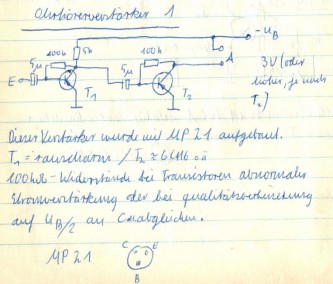 Anhörverstärker 1
-U_B
100k
5k
100k
5µ
5µ
A
E
T₁
T₂
3V (oder
höher, je nach
T₂)
Dieser Verstärker wurde mit MP 21 aufgebaut.
T₁ = rauscharm / T₂ ≈ o.ä
100kΩ-Widerstände bei Transistoren abnormaler
Stromverstärkung oder bei
auf U_B/2 an C abgleichen.
MP 21
C
E
B